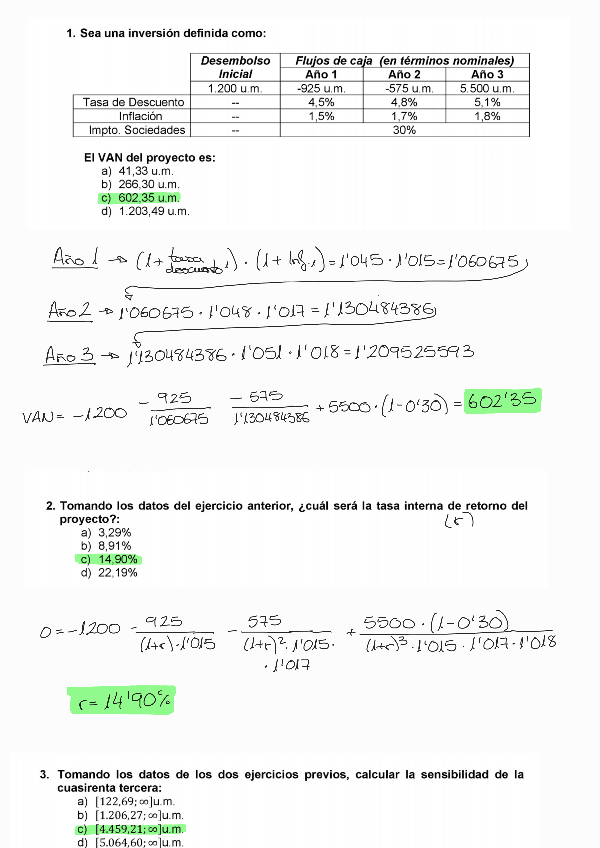 1. Sea una inversión definida como:
Desembolso Inicial Flujos de caja (en términos nominales)
Año 1 Año 2 Año 3
1.200 u.m. -925 u.m. -575 u.m. 5.500 u.m.
Tasa de Descuento -- 4,5% 4,8% 5,1%
Inflación -- 1,5% 1,7% 1,8%
Impto. Sociedades -- 30%
El VAN del proyecto es:
a) 41,33 u.m.
b) 266,30 u.m.
c) 602,35 u.m.
d) 1.203,49 u.m.
Año 1 → (1 + tasa descuento 1) · (1 + Inf. 1) = 1'045 · 1'015 = 1'060675
Año 2 → 1'060675 · 1'048 · 1'017 = 1'130484386
Año 3 → 1'130484386 · 1'051 · 1'018 = 1'209525593
VAN = -1200 - 925/1'060675 - 575/1'130484386 + 5500 · (1-0'30) = 602'35
2. Tomando los datos del ejercicio anterior, ¿cuál será la tasa interna de retorno del
proyecto?: (r)
a) 3,29%
b) 8,91%
c) 14,90%
d) 22,19%
0 = -1200 - 925/(1+r) · 1'015 - 575/(1+r)² · 1'015 · · 1'017 + 5500 · (1-0'30)/(1+r)³ · 1'015 · 1'017 · 1'018
r = 14'90%
3. Tomando los datos de los dos ejercicios previos, calcular la sensibilidad de la
cuasirenta tercera:
a) [122,69; ∞]u.m.
b) [1.206,27; ∞]u.m.
c) [4.459,21; ∞]u.m.
d) [5.064,60; ∞]u.m.